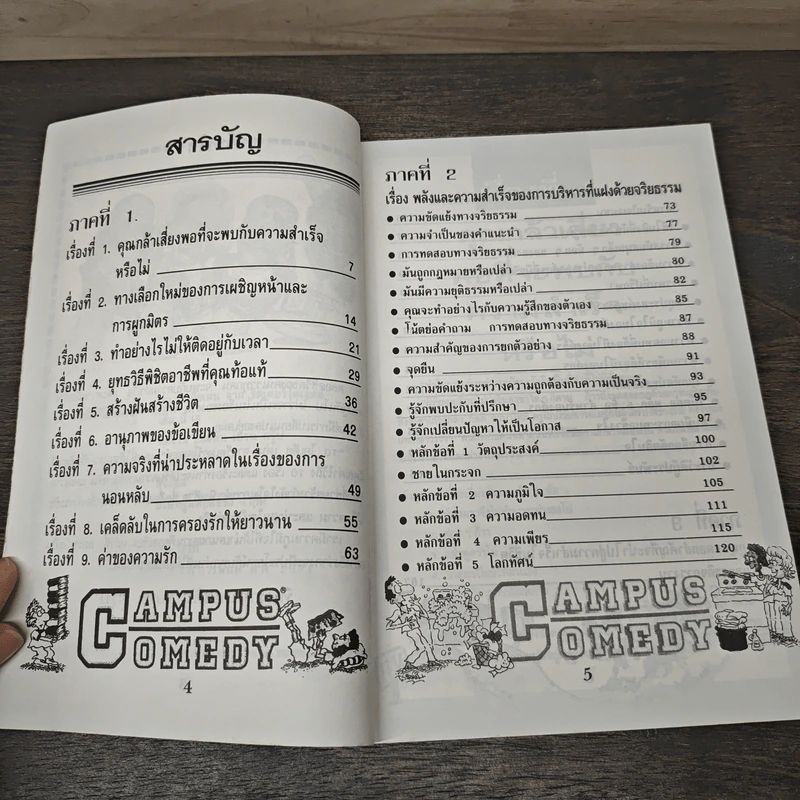 สารบัญ
ภาคที่ 1.
เรื่องที่ 1. คุณกล้าเสี่ยงพอที่จะพบกับความสำเร็จ
หรือไม่ 7
เรื่องที่ 2. ทางเลือกใหม่ของการเผชิญหน้าและ
การผูกมิตร 14
เรื่องที่ 3. ทำอย่างไรไม่ให้ติดอยู่กับเวลา 21
เรื่องที่ 4. ยุทธวิธีพิชิตอาชีพที่คุณท้อแท้ 29
เรื่องที่ 5. สร้างฝันสร้างชีวิต 36
เรื่องที่ 6. อานุภาพของข้อเขียน 42
เรื่องที่ 7. ความจริงที่น่าประหลาดในเรื่องของการ
นอนหลับ 49
เรื่องที่ 8. เคล็ดลับในการครองรักให้ยาวนาน 55
เรื่องที่ 9. ค่าของความรัก 63
CAMPUS®
COMEDY
4
ภาคที่ 2
เรื่อง พลังและความสำเร็จของการบริหารที่แฝงด้วยจริยธรรม
● ความขัดแย้งทางจริยธรรม 73
● ความจำเป็นของคำแนะนำ 77
● การทดสอบทางจริยธรรม 79
● มันถูกกฎหมายหรือเปล่า 80
● มันมีความยุติธรรมหรือเปล่า 82
● คุณจะทำอย่างไรกับความรู้สึกของตัวเอง 85
● โน้ตย่อคำถาม การทดสอบทางจริยธรรม 87
● ความสำคัญของการยกตัวอย่าง 88
● จุดยืน 91
● ความขัดแย้งระหว่างความถูกต้องกับความเป็นจริง 93
● รู้จักพบปะกับที่ปรึกษา 95
● รู้จักเปลี่ยนปัญหาให้เป็นโอกาส 97
● หลักข้อที่ 1 วัตถุประสงค์ 100
● ชายในกระจก 102
● หลักข้อที่ 2 ความภูมิใจ 105
● หลักข้อที่ 3 ความอดทน 111
● หลักข้อที่ 4 ความเพียร 115
● หลักข้อที่ 5 โลกทัศน์ 120
CAMPUS
COMEDY
5